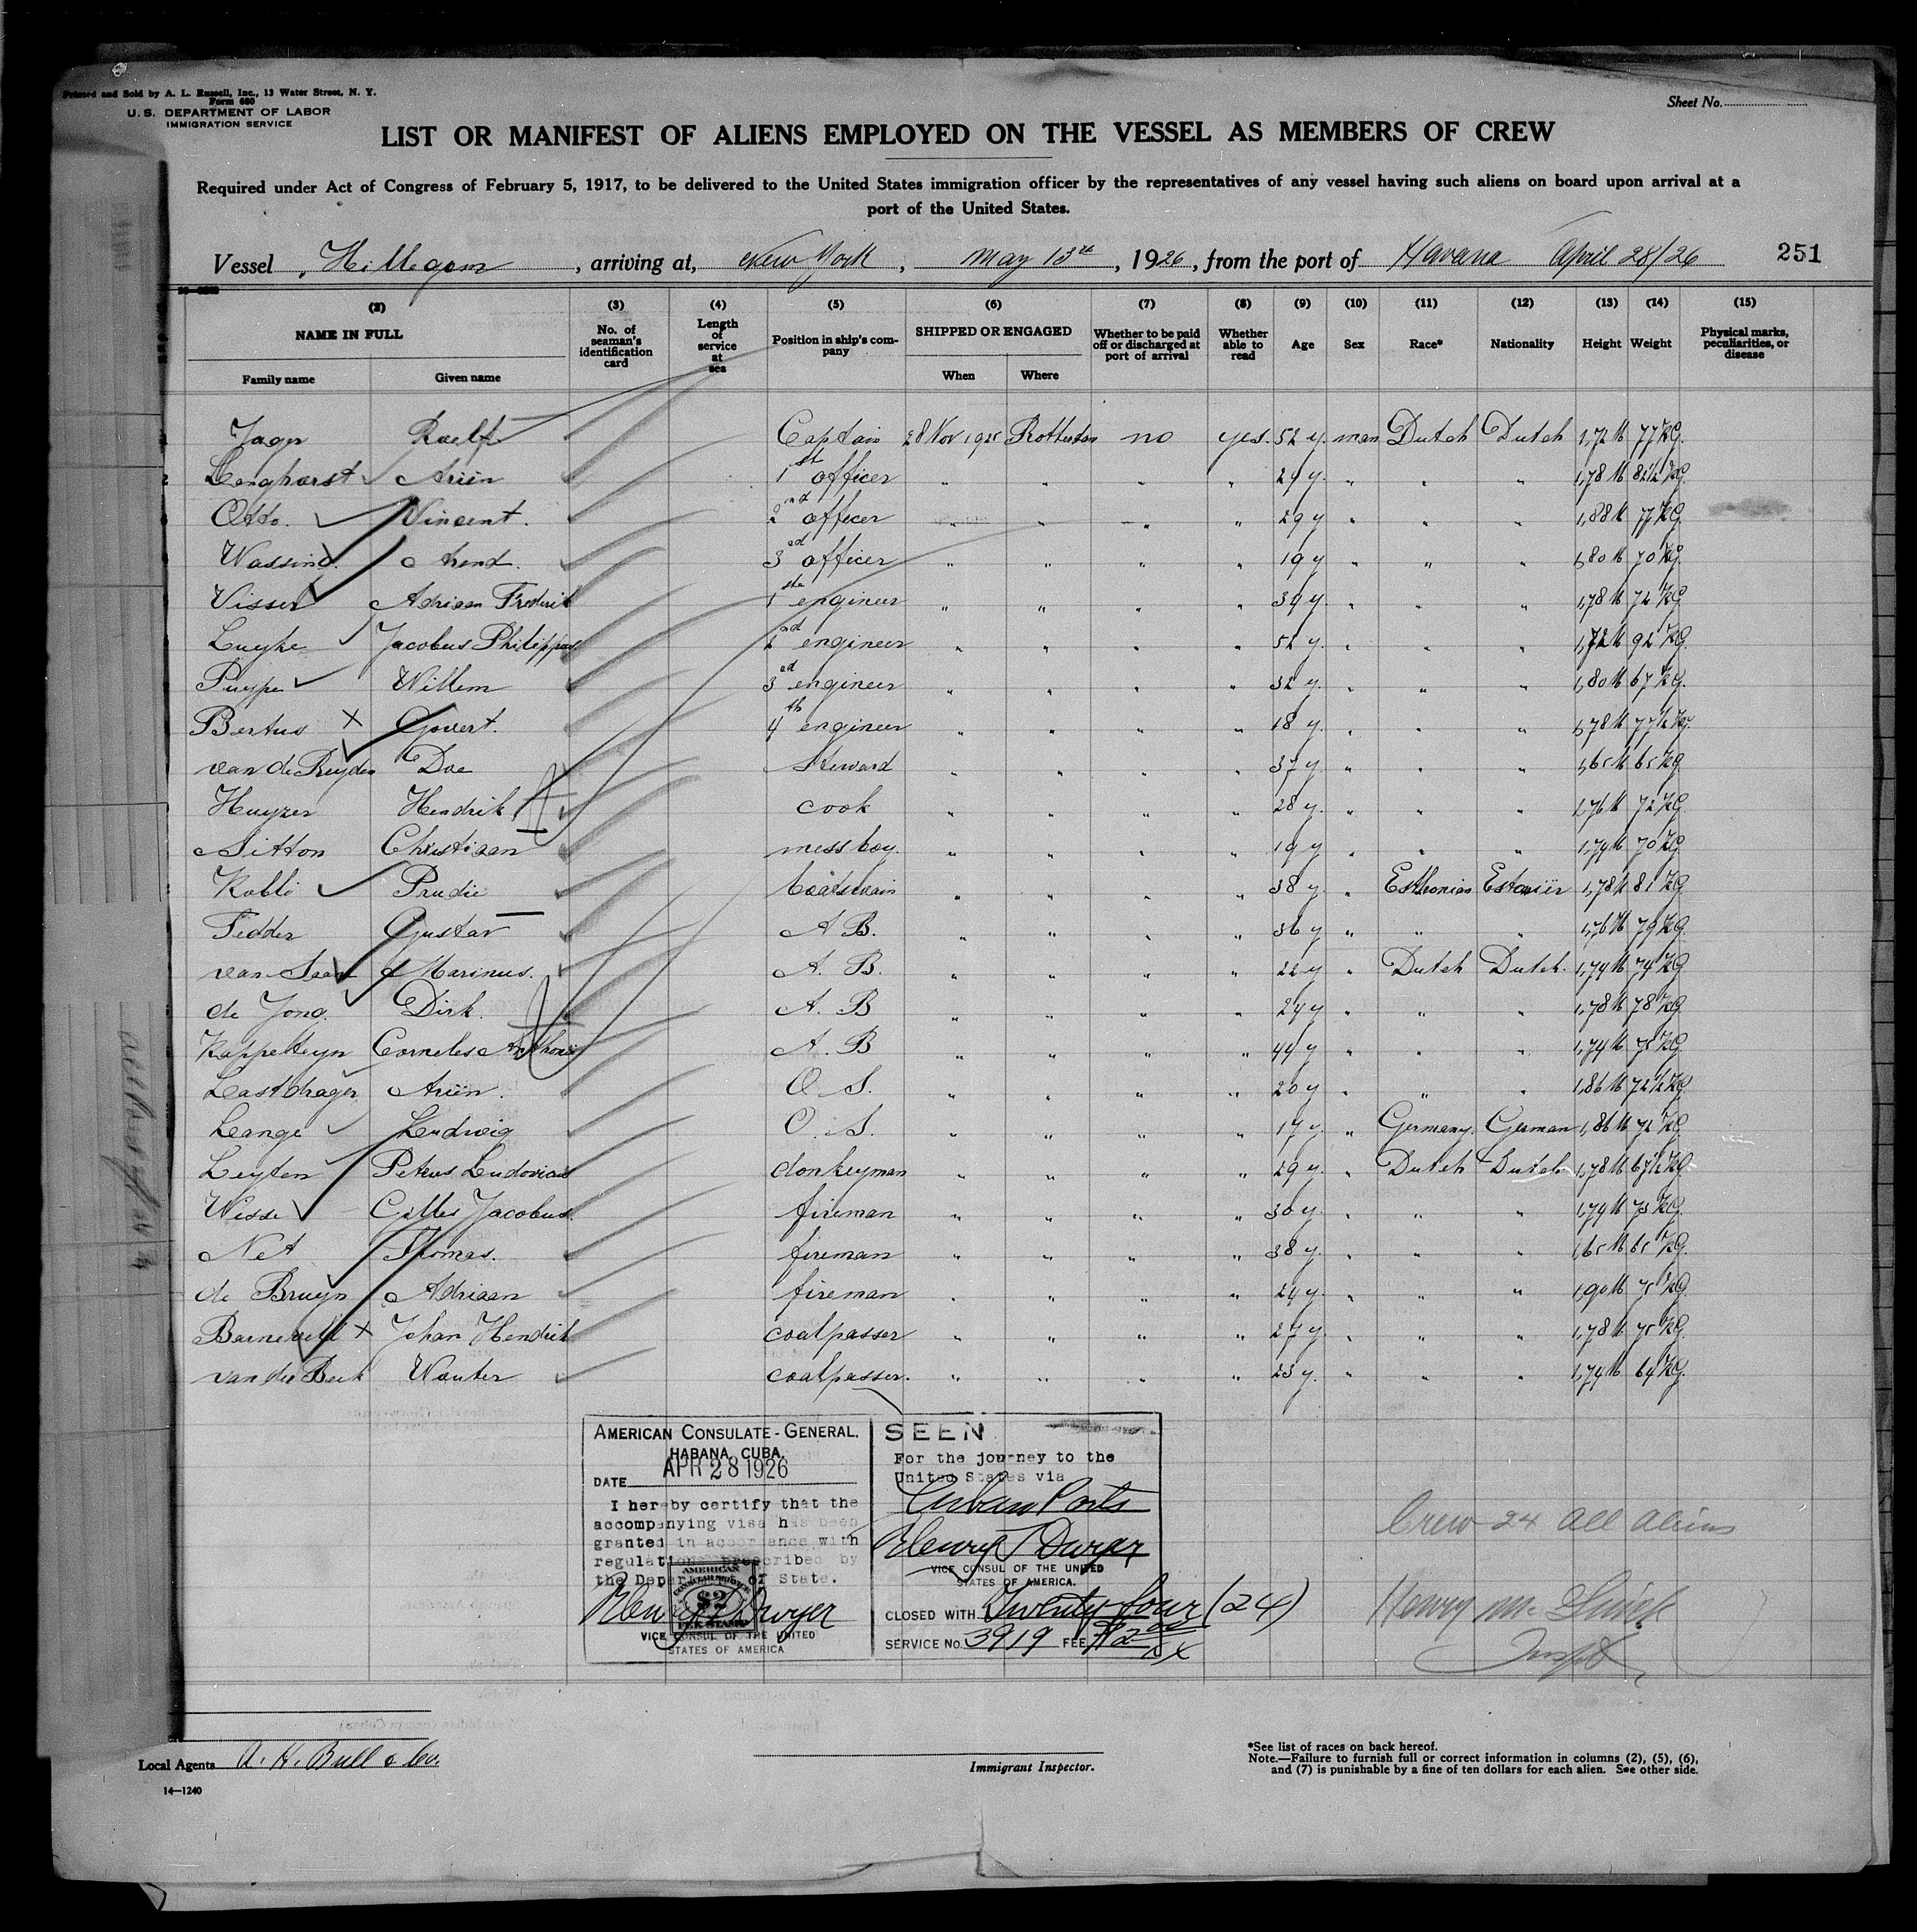 Printed and Sold by A. L. Russell, Inc., 13 Water Street, N. Y.
Form 680
U. S. DEPARTMENT OF LABOR
IMMIGRATION SERVICE
Sheet No.
LIST OR MANIFEST OF ALIENS EMPLOYED ON THE VESSEL AS MEMBERS OF CREW
Required under Act of Congress of February 5, 1917, to be delivered to the United States immigration officer by the representatives of any vessel having such aliens on board upon arrival at a
port of the United States.
Vessel Hillegom, arriving at, New York, May 13th, 1926, from the port of Havana April 28/26 251
(2) (3) (4) (5) (6) (7) (8) (9) (10) (11) (12) (13) (14) (15)
NAME IN FULL No. of seaman's identification card Length of service at sea Position in ship's company SHIPPED OR ENGAGED Whether to be paid off or discharged at port of arrival Whether able to read Age Sex Race* Nationality Height Weight Physical marks, peculiarities, or disease
Family name Given name When Where
Jager Roelf Captain 28 Nov 1925 Rotterdam no yes. 52 y. man Dutch Dutch 1,72 M 77 KG.
Langhorst Ariën 1st officer " " " " 29 y. " " " 1,78 M 82½ KG.
Otto. Vincent. 2nd officer " " " " 29 y " " " 1,88 M 77 KG.
Wassink. Arend. 3rd officer " " " " 19 y " " " 1,80 M 70 KG.
Visser Adriaan Frederik 1ste engineer " " " " 39 y. " " " 1,78 M 72 KG
Luyke Jacobus Philippus 2nd engineer " " " " 52 y. " " " 1,72 M 92 KG.
Puype Willem 3rd engineer " " " " 32 y. " " " 1,80 M 67 KG.
Bertus X Govert. 4th engineer " " " " 18 y. " " " 1,78 M 77½ KG.
van de Ruyden Doe Steward " " " " 37 y. " " " 1,65 M 65 KG
Huyzer Hendrik cook " " " " 28 y. " " " 1,76 M 72 KG
Sitton Christiaan mess boy. " " " " 19 y " " " 1,79 M 70 KG
Kobli Prudie boatswain " " " " 38 y. " Esthonian Estoniër 1,78 M 81 KG
Fedder Gustav A B. " " " " 36 y " " " 1,76 M 79 KG.
van Marinus. A. B. " " " " 22 y " Dutch Dutch. 1,74 M 74 KG
de Jong. Dirk. A. B " " " " 24 y " " " 1,78 M 78 KG.
Kappetteyn Cornelis Anthonie A. B " " " " 44 y " " " 1,74 M 75 KG.
Lastdrager Ariën. O S. " " " " 20 y " " " 1,86 M 72½ KG.
Lange Ludwig O. S. " " " " 17 y. " Germany. German 1,86 M 72 KG
Leyten Peterus Ludovicus donkeyman " " " " 29 y. " Dutch Dutch 1,78 M 67½ KG.
Wisse Gilles Jacobus. fireman " " " " 30 y. " " " 1,79 M 73 KG.
Net Thomas. fireman " " " " 38 y. " " " 1,65 M 65 KG.
de Bruyn Adriaan fireman " " " " 24 y. " " " 1,90 M 75 KG.
Barneveld X Johan Hendrik coalpasser " " " " 27 y. " " " 1,78 M 75 KG.
van der Beek Wouter coalpasser. " " " " 23 y. " " " 1,74 M 64 KG.
AMERICAN CONSULATE-GENERAL,
HABANA, CUBA.
DATE APR 28 1926
I hereby certify that the
accompanying visa has been
granted in accordance with
regulations prescribed by
the Department of State.
AMERICAN
CONSULAR SERVICE
$2
FEE STAMP
Henry T Dwyer
VICE CONSUL OF THE UNITED
STATES OF AMERICA
SEEN
For the journey to the
United States via
Cuban Ports
Henry T Dwyer
VICE CONSUL OF THE UNITED
STATES OF AMERICA.
CLOSED WITH Twenty four (24)
SERVICE No. 3919 FEE $2.00
Crew 24 all aliens
Henry Mc
Inspt
Local Agents A. H. Bull & Co.
14—1240
Immigrant Inspector.
*See list of races on back hereof.
Note.—Failure to furnish full or correct information in columns (2), (5), (6),
and (7) is punishable by a fine of ten dollars for each alien. See other side.